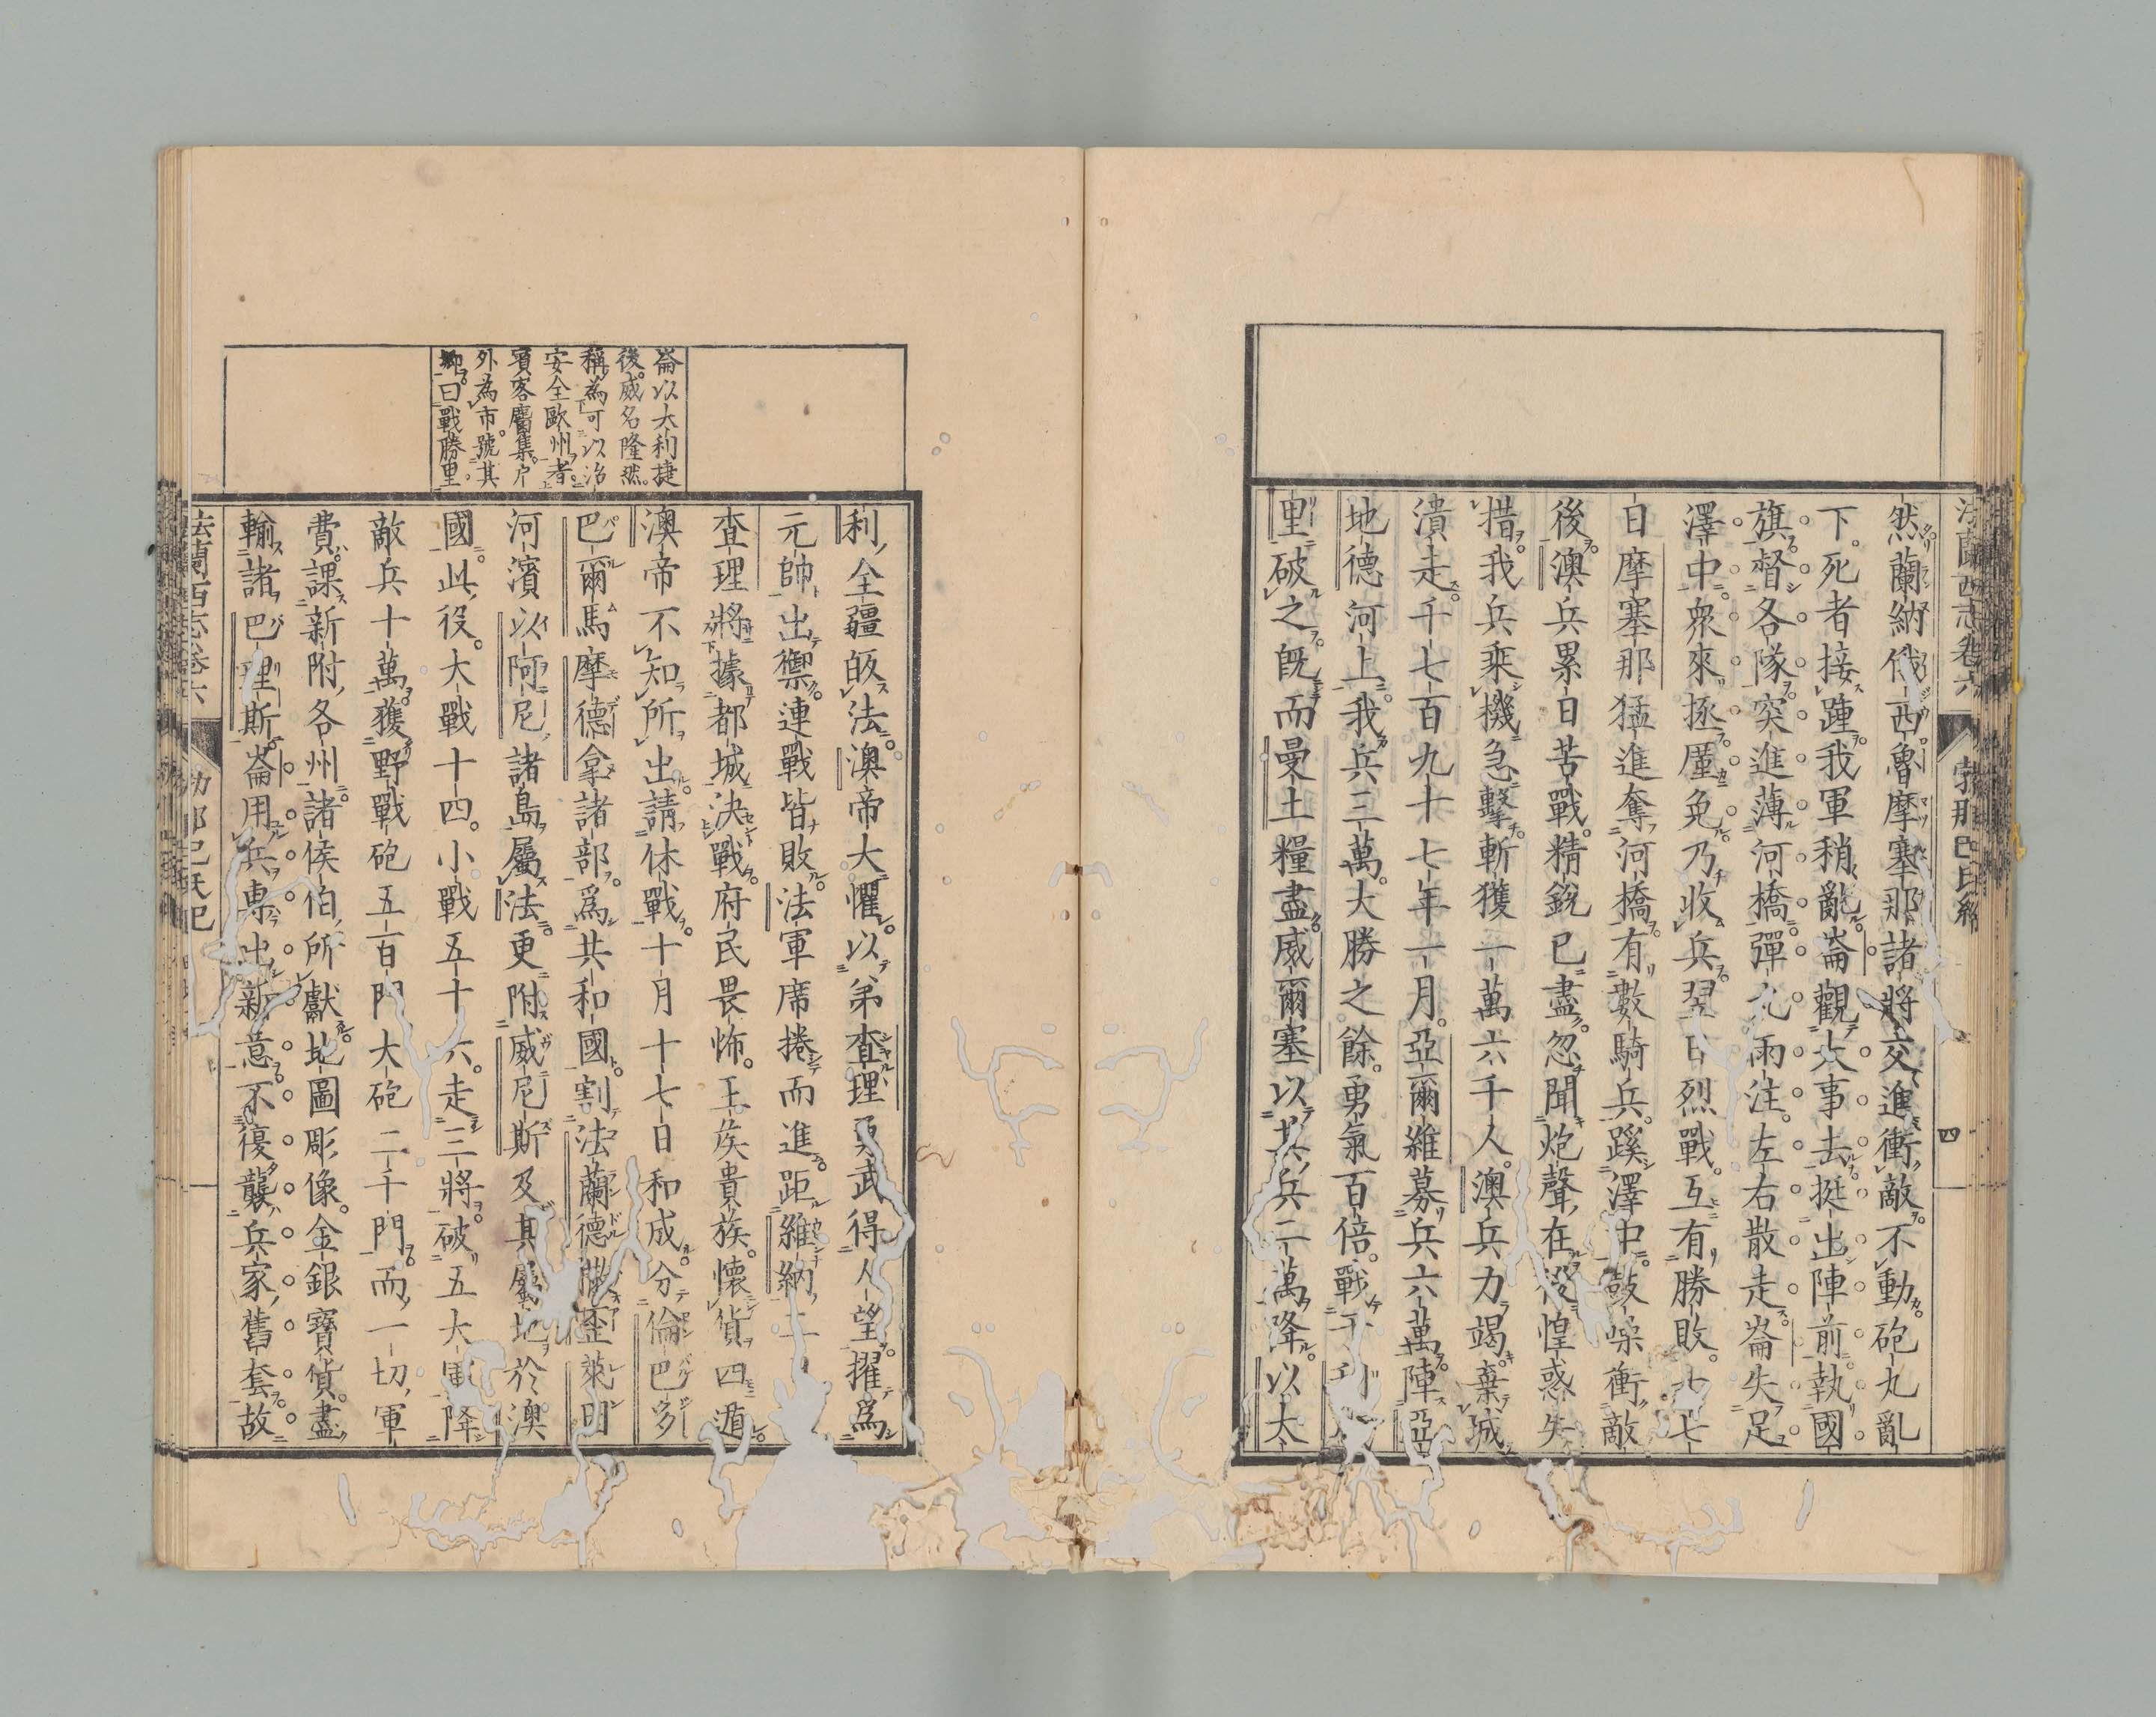 法蘭西志卷六 勃那巴氏紀 四
然蘭納俄西魯摩塞那諸將交進衝敵不動砲丸亂
下死者接踵我軍稍亂崙觀大事去挺出陣前執國
旗督各隊突進薄河橋彈丸雨注左右散走崙失足
澤中衆來拯厪免乃收兵翌日烈戰互有勝敗十七
日摩塞那猛進奪河橋有數騎兵蹊澤中鼓噪衝敵
後澳兵累日苦戰精銳已盡忽聞炮聲在後惶惑失
措我兵乘機急擊斬獲一萬六千人澳兵力竭棄城
潰走千七百九十七年一月亞爾維募兵六萬陣亞
地德河上我兵三萬大勝之餘勇氣百倍戰于利
里破之既而曼土糧盡威爾塞以其兵二萬降以太
崙以大利捷
後威名隆然
稱為可以治
安全歐州者
賓客麕集戶
外為市號其
鄉曰戰勝里
利全疆皈法澳帝大懼以弟查理勇武得人望擢爲
元帥出禦連戰皆敗法軍席捲而進距維納二
查理將據都城決戰府民畏怖王族貴族懷貨四遁
澳帝不知所出請休戰十月十七日和成分倫巴多
巴爾馬摩德拿諸部爲共和國割法蘭德撒歪萊因
河濱以阿尼諸島屬法更附威尼斯及其屬地於澳
國此役大戰十四小戰五十六走三將破五大軍降
敵兵十萬獲野戰砲五百門大砲二千門而一切軍
費課新附各州諸侯伯所獻地圖彫像金銀寶貨盡
輸諸巴理斯崙用兵專出新意不復襲兵家舊套故
法蘭西志卷六 勃那巴氏紀